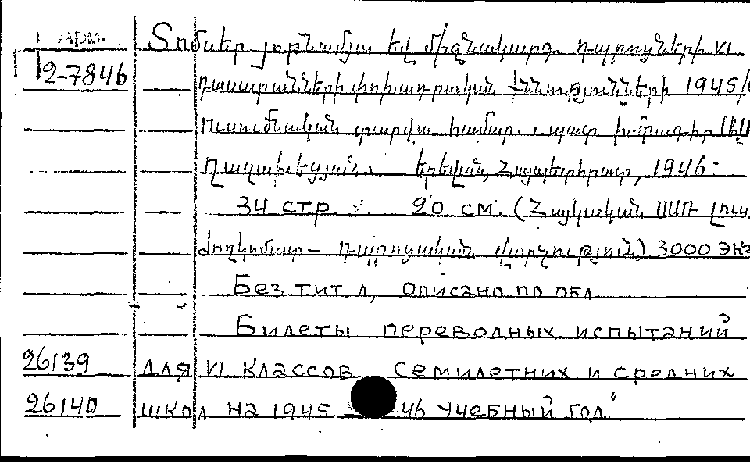 АРМ. Տոմսեր յոթնամյա եվ միջնակարգ դպրոցների VI
2-7846 դասարանների փոխադրական քննությունների 1945/
ուսումնական տարվա համար. պատ. խմբագիր
Ղազախեցյան. Երեվան, Հայպետհրատ, 1946:
34 стр. 20 см. (Հայկական ՍՍՌ Լուս.
Ժողկոմատ – Դպրոցական վարչություն) 3000 экз
Без тит. л, описано по обл
Билеты переводных испытаний
26139 для VI классов семилетних и средних
26140 школ на 1945 46 учебный год"